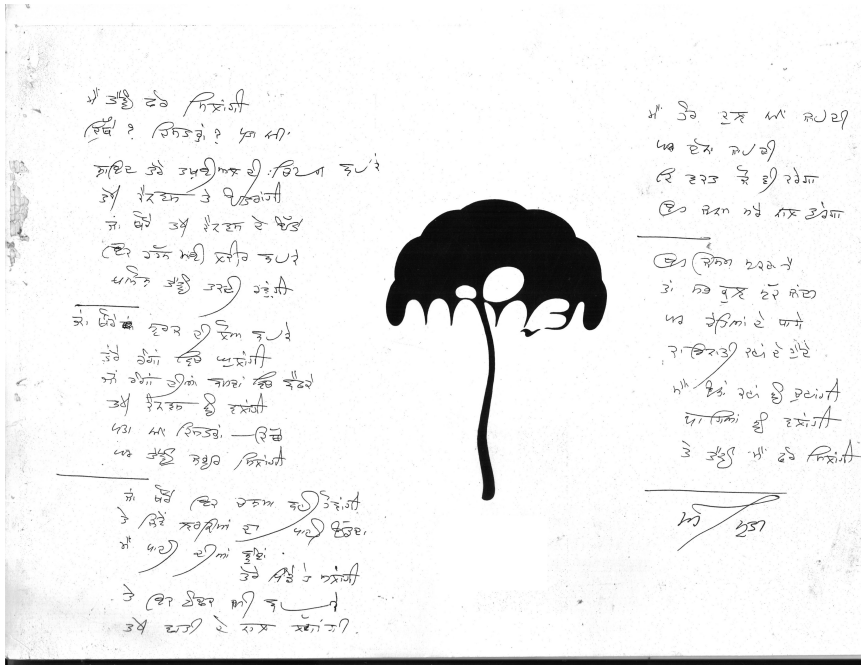 ਮੈਂ ਤੈਨੂੰ ਫੇਰ ਮਿਲਾਂਗੀ
ਕਿੱਥੇ ? ਕਿਸਤਰ੍ਹਾਂ ? ਪਤਾ ਨਹੀਂ
ਸ਼ਾਇਦ ਤੇਰੇ ਤਖ਼ਈਅਲ ਦੀ ਚਿਣਗ ਬਣਕੇ
ਤੇਰੀ ਕੈਨਵਸ ਤੇ ਉਤਰਾਂਗੀ
ਜਾਂ ਖੌਰੇ ਤੇਰੀ ਕੈਨਵਸ ਦੇ ਉੱਤੇ
ਇਕ ਰਹੱਸਮਈ ਲਕੀਰ ਬਣਕੇ
ਖ਼ਾਮੋਸ਼ ਤੈਨੂੰ ਤਕਦੀ ਰਹਾਂਗੀ
ਜਾਂ ਖੌਰੇ ਸੂਰਜ ਦੀ ਲੋਅ ਬਣਕੇ
ਤੇਰੇ ਰੰਗਾਂ ਵਿਚ ਘੁਲਾਂਗੀ
ਜਾਂ ਰੰਗਾਂ ਦੀਆਂ ਬਾਹਵਾਂ ਵਿਚ ਬੈਠਕੇ
ਤੇਰੀ ਕੈਨਵਸ ਨੂੰ ਵਲਾਂਗੀ
ਪਤਾ ਨਹੀਂ ਕਿਸਤਰ੍ਹਾਂ — ਕਿੱਥੇ
ਪਰ ਤੈਨੂੰ ਜ਼ਰੂਰ ਮਿਲਾਂਗੀ
ਜਾਂ ਖੌਰੇ ਇਕ ਚਸ਼ਮਾ ਬਣੀ ਹੋਵਾਂਗੀ
ਤੇ ਜਿਵੇਂ ਝਰਨਿਆਂ ਦਾ ਪਾਣੀ ਉੱਡਦਾ
ਮੈਂ ਪਾਣੀ ਦੀਆਂ ਬੂੰਦਾਂ
ਤੇਰੇ ਪਿੰਡੇ ਤੇ ਮਲਾਂਗੀ
ਤੇ ਇਕ ਠੰਢਕ ਜਹੀ ਬਣਕੇ
ਤੇਰੀ ਛਾਤੀ ਦੇ ਨਾਲ ਲੱਗਾਂਗੀ
ਮੈਂ ਹੋਰ ਕੁਝ ਨਹੀਂ ਜਾਣਦੀ
ਪਰ ਏਨਾ ਜਾਣਦੀ
ਕਿ ਵਕਤ ਜੋ ਵੀ ਕਰੇਗਾ
ਇਹ ਜਨਮ ਮੇਰੇ ਨਾਲ ਤੁਰੇਗਾ
ਇਹ ਜਿਸਮ ਮੁਕਦਾ ਹੈ
ਤਾਂ ਸਭ ਕੁਝ ਮੁੱਕ ਜਾਂਦਾ
ਪਰ ਚੇਤਿਆਂ ਦੇ ਧਾਗੇ
ਕਾਇਨਾਤੀ ਕਣਾਂ ਦੇ ਹੁੰਦੇ
ਮੈਂ ਉਨ੍ਹਾਂ ਕਣਾਂ ਨੂੰ ਚੁਣਾਂਗੀ
ਧਾਗਿਆਂ ਨੂੰ ਵਲਾਂਗੀ
ਤੇ ਤੈਨੂੰ ਮੈਂ ਫੇਰ ਮਿਲਾਂਗੀ